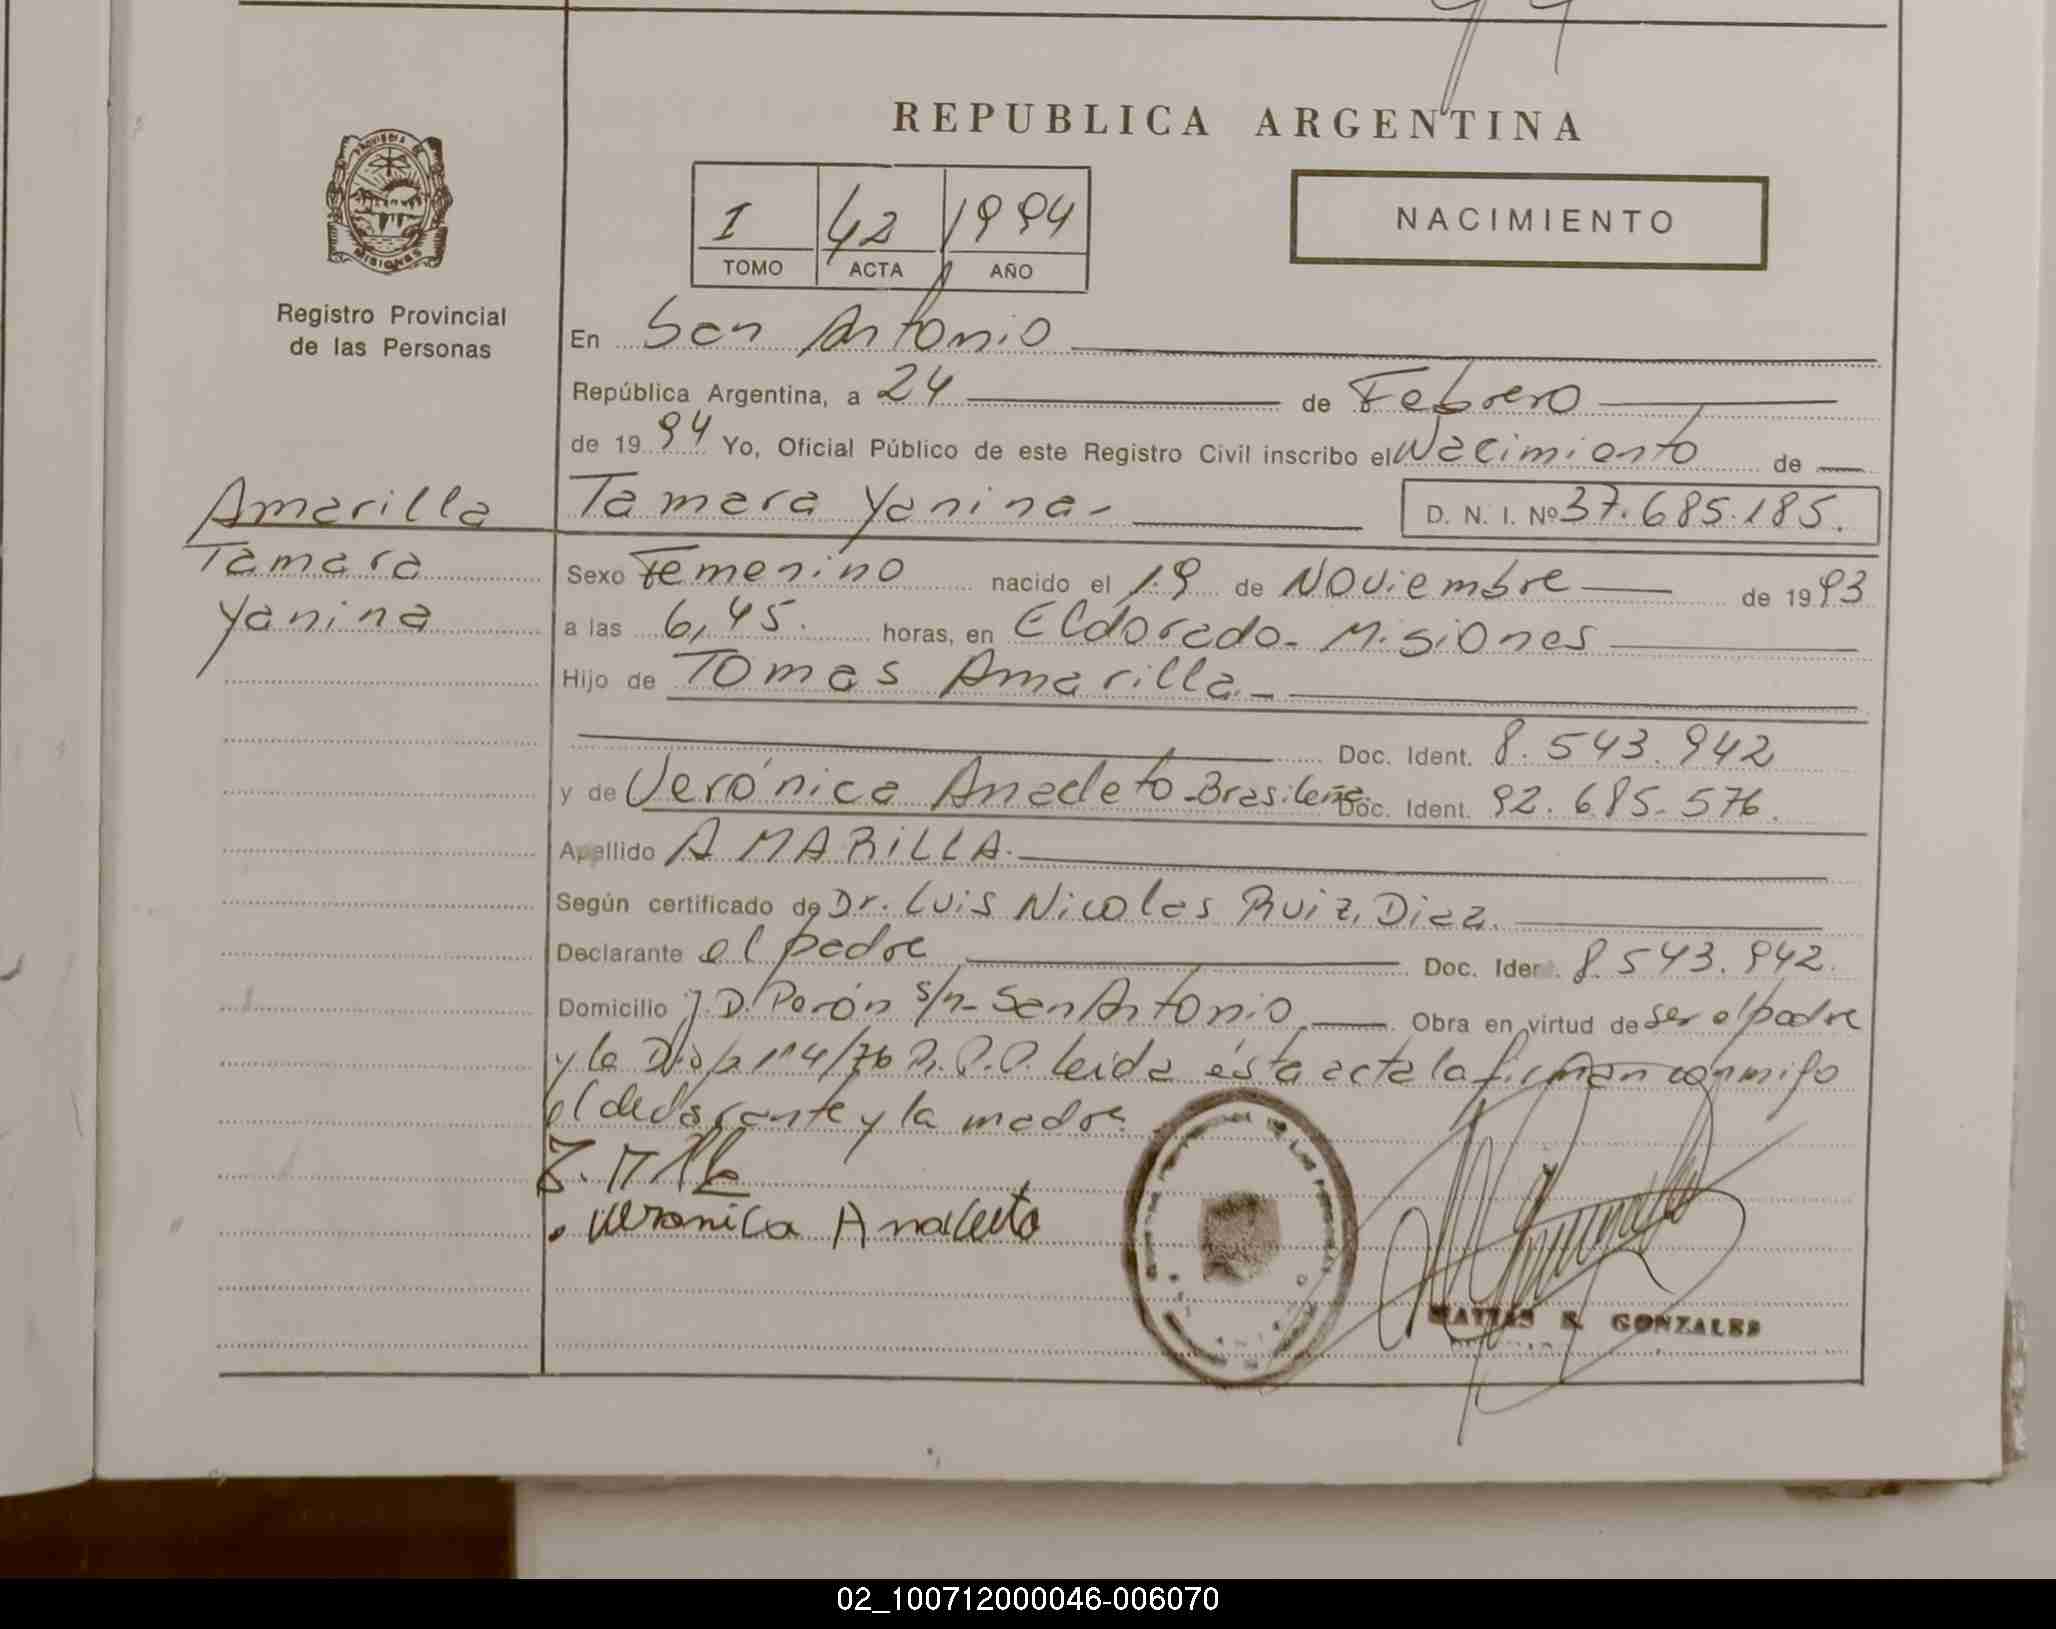 REPUBLICA ARGENTINA
I 42 1994
TOMO ACTA AÑO
NACIMIENTO
MISIONES
Registro Provincial
de las Personas
En San Antonio
República Argentina, a 24 de Febrero
de 1994 Yo, Oficial Público de este Registro Civil inscribo el Nacimiento de
Amarilla
Tamara
Yanina
Tamara Yanina- D. N. I. Nº 37.685.185.
Sexo Femenino nacido el 19 de Noviembre de 1993
a las 6,45. horas, en Eldorado- Misiones
Hijo de Tomas Amarilla.-
Doc. Ident. 8.543.942
y de Verónica Anacleto-Brasileña Doc. Ident. 92.685.576.
Apellido AMARILLA.
Según certificado de Dr. Luis Nicolas Ruiz, Diaz.
Declarante el padre Doc. Ident. 8.543.942.
Domicilio J.D. Perón s/n- San Antonio Obra en virtud de ser el padre
y la Disp. 114/76 R.P.P. leida ésta acta la firman conmigo
el declarante y la madre
Veronica Anacleto
MATIAS R. GONZALES
02_100712000046-006070